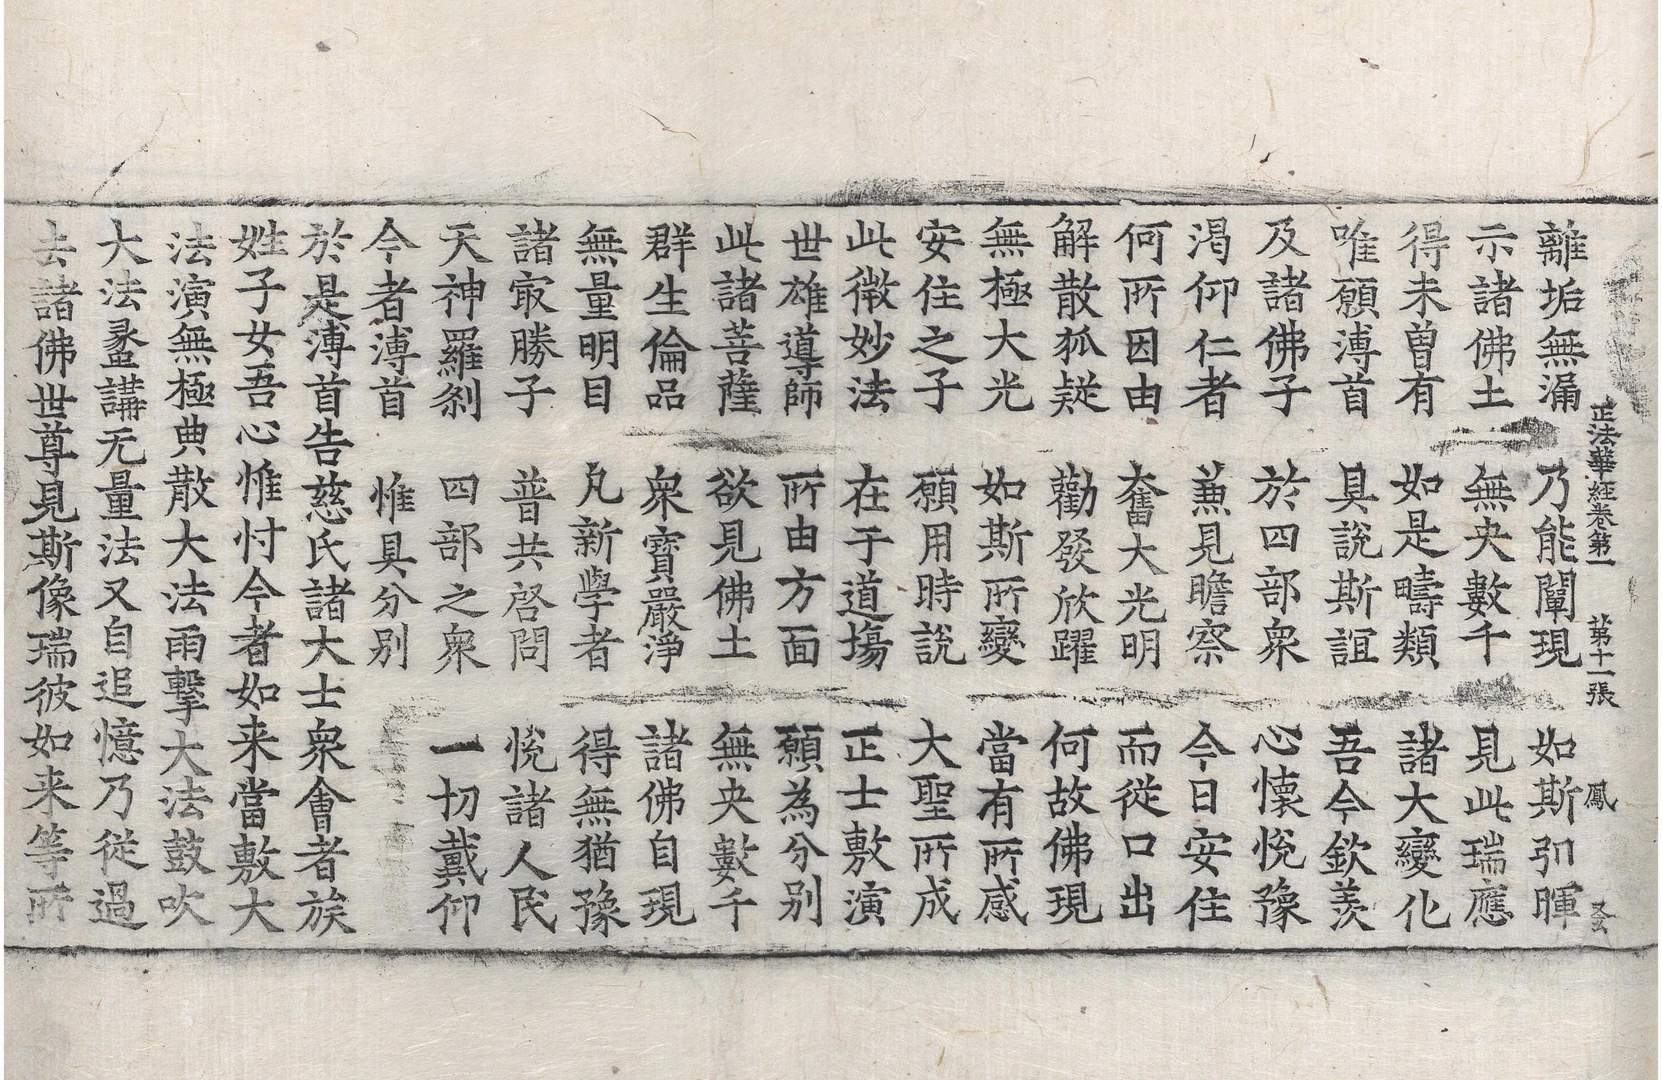 正法華經卷第一 第十一張 鳳
離垢無漏 乃能闡現 如斯弘暉
示諸佛土 無央數千 見此瑞應
得未曾有 如是疇類 諸大變化
唯願溥首 具說斯誼 吾今欽羨
及諸佛子 於四部眾 心懷悅豫
渴仰仁者 蒹見瞻察 今日安住
何所因由 奮大光明 而從口出
解散狐疑 勸發欣躍 何故佛現
無極大光 如斯所變 當有所感
安住之子 願用時說 大聖所成
此微妙法 在于道場 正士敷演
世雄導師 所由方面 願為分別
此諸菩薩 欲見佛土 無央數千
群生倫品 眾寶嚴淨 諸佛自現
無量明目 凡新學者 得無猶豫
諸冣勝子 普共啓問 悅諸人民
天神羅剎 四部之眾 一切戴仰
今者溥首 惟具分別
於是溥首告慈氏諸大士眾會者族
姓子女吾心惟忖今者如来當敷大
法演無極典散大法雨擊大法鼓吹
大法蠡講无量法又自追憶乃從過
去諸佛世尊見斯像瑞彼如来等所